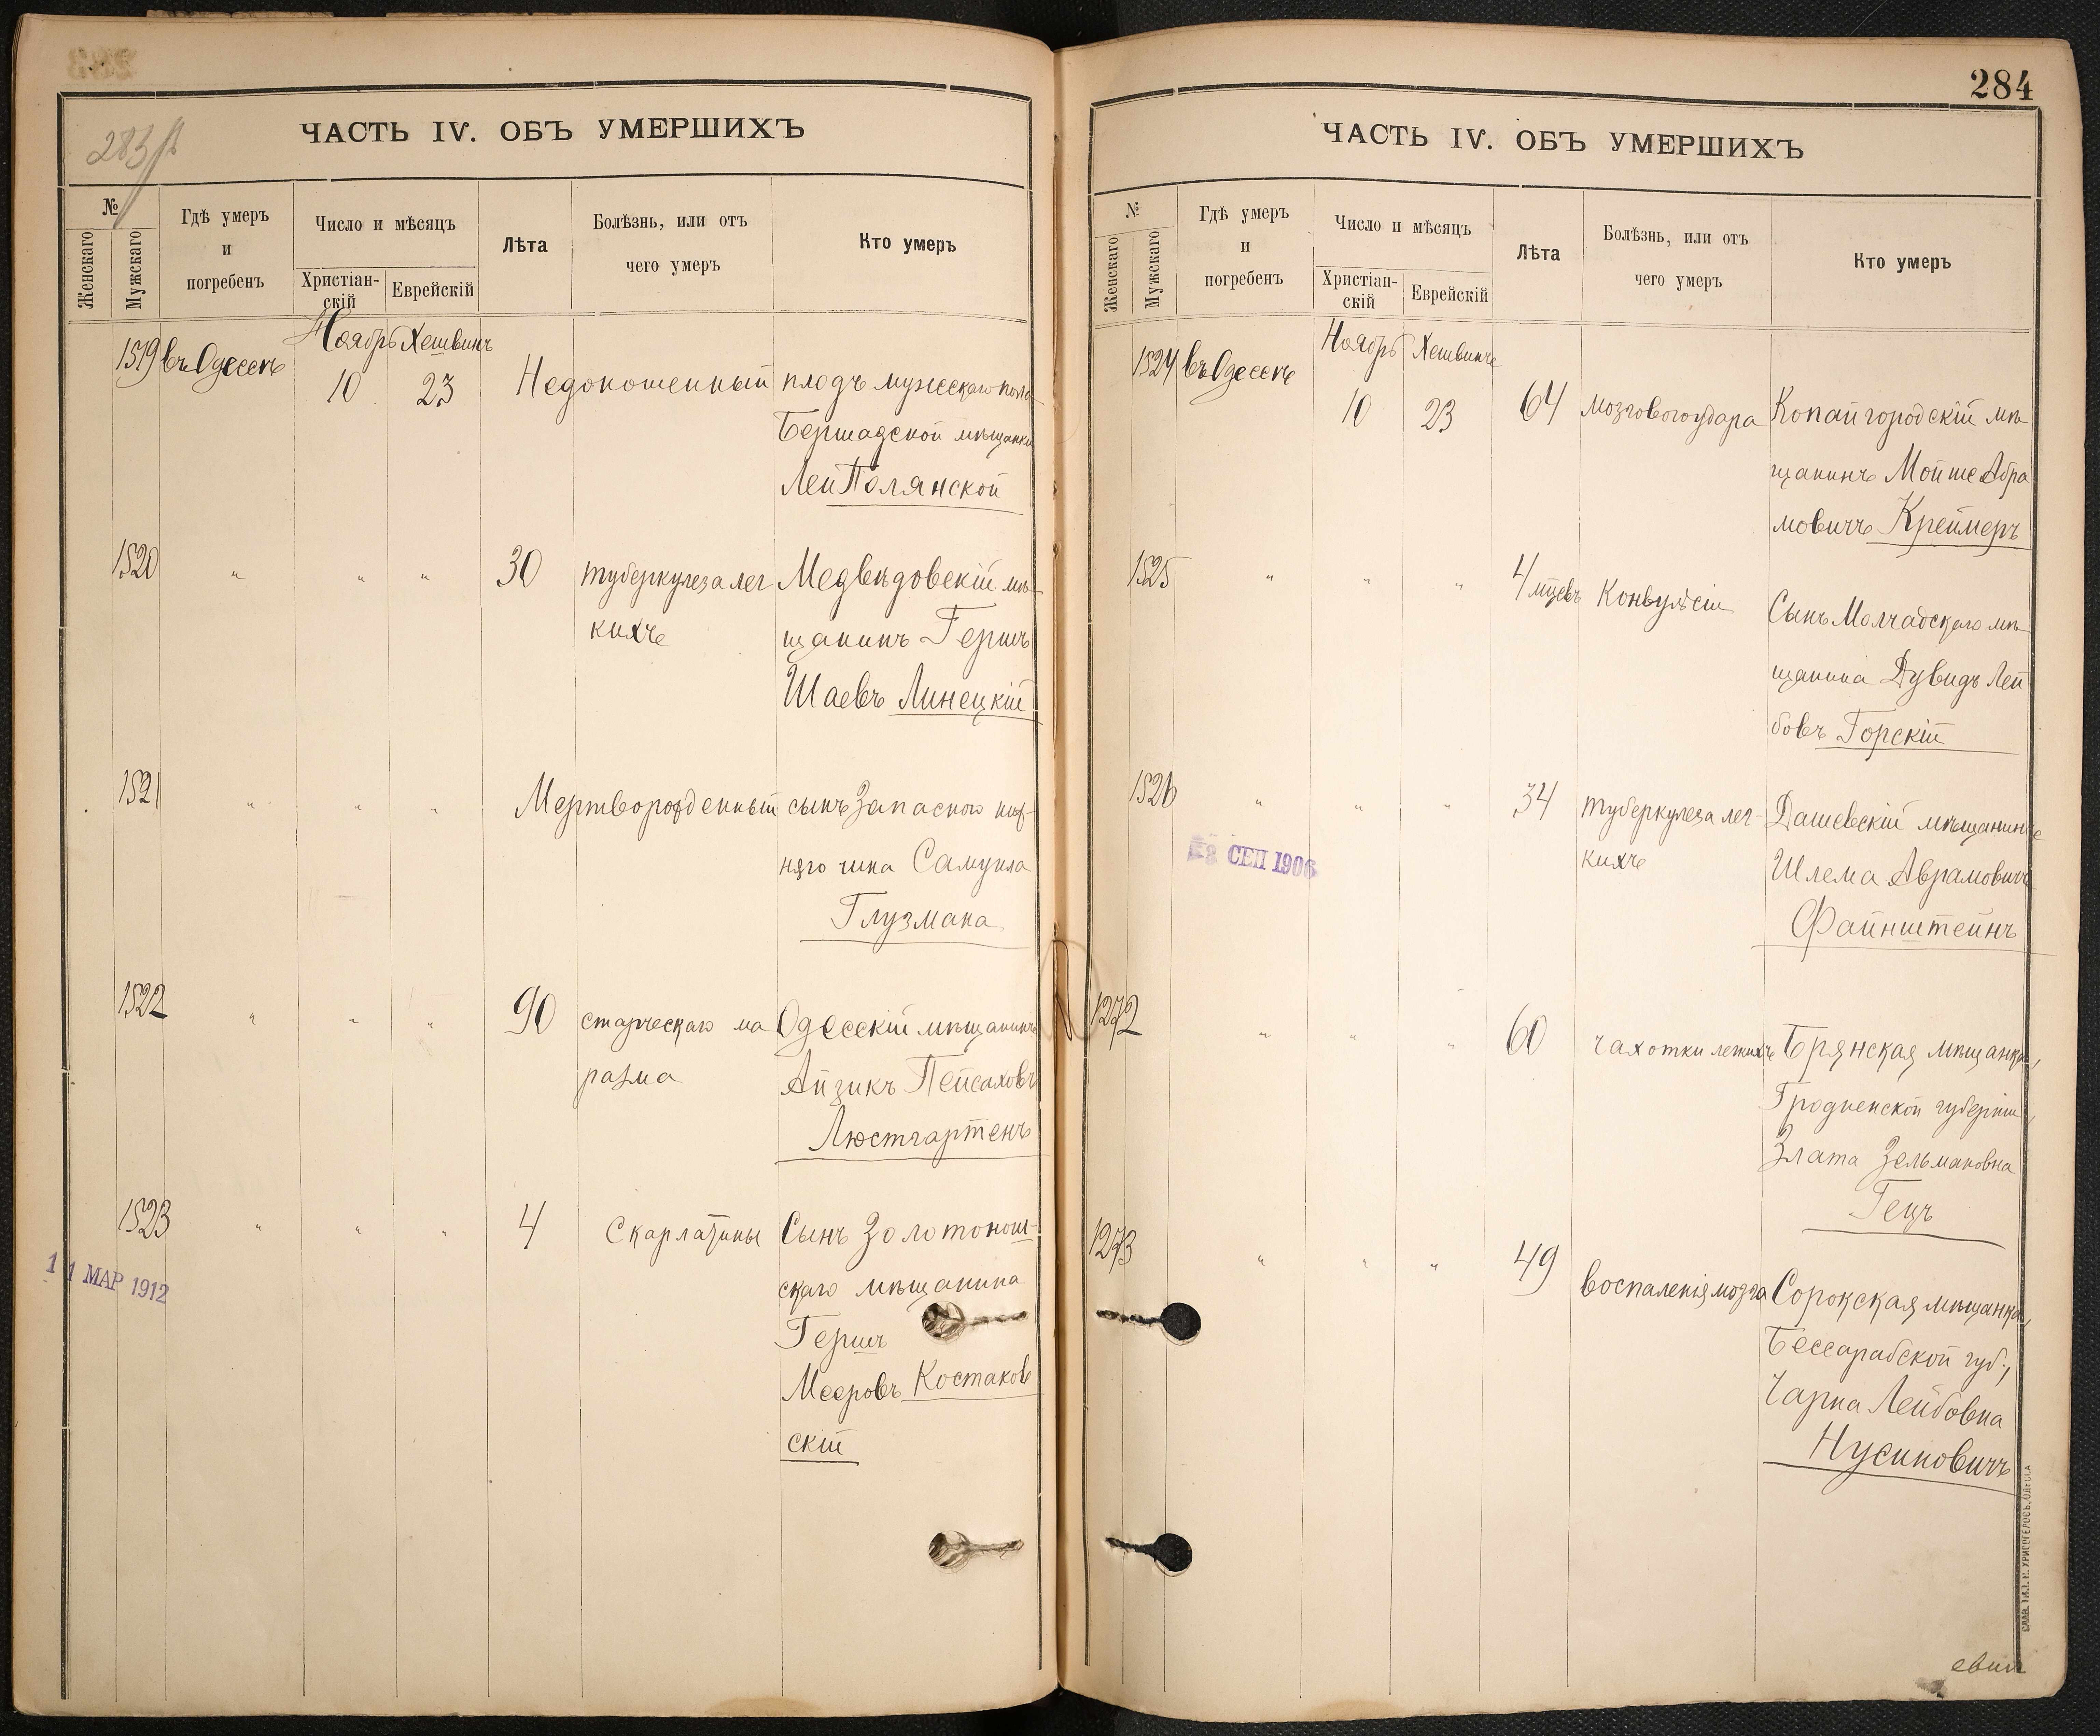 283
ЧАСТЬ IV. ОБЪ УМЕРШИХЪ
№
Женскаго
Мужскаго
Гдѣ умеръ
и
погребенъ
Число и мѣсяцъ
Христіан-
скій
Еврейскій
Лѣта
Болѣзнь, или отъ
чего умеръ
Кто умеръ
Ноябрь Хешвинъ
1519 въ Одессѣ 10 23 Недоношенный плодъ мужескаго пола
Бершадской мѣщанки
Леи Полянской
1520 " " " 30 туберкулеза лег Медвѣдовскій мѣ-
кихъ щанинъ Гершъ
Шаевъ Линецкій
1521 " " " Мертворожденный сынъ Запасного ниж-
няго чина Самуила
Глузмана
1522 " " " 90 старческаго ма Одесскій мѣщанинъ
разма Айзикъ Пейсаховъ
Люстгартенъ
1523 " " " 4 Скарлатины Сынъ Золотонош-
скаго мѣщанина
Гершъ
Мееровъ Костаков
скій
11 МАР 1912
284
ЧАСТЬ IV. ОБЪ УМЕРШИХЪ
№
Женскаго
Мужскаго
Гдѣ умеръ
и
погребенъ
Число и мѣсяцъ
Христіан-
скій
Еврейскій
Лѣта
Болѣзнь, или отъ
чего умеръ
Кто умеръ
Ноябрь Хешвинъ
1524 въ Одессѣ 10 23 64 мозгового удара Копайгородскій мѣ-
щанинъ Мойше Абра
мовичъ Креймеръ
1525 " " " 4 мцевъ Конвульсіи Сынъ Молчадскаго мѣ-
щанина Дувидъ Лей
бовъ Горскій
1526 " " " 34 туберкулеза лег- Дашевскій мѣщанинъ
кихъ Шлема Аврамовичъ
Файнштейнъ
СЕП 1906
1272 " " " 60 чахотки легкихъ Брянская мѣщанка,
Гродненской губерніи,
Злата Зельмановна
Гецъ
1273 " " " 49 воспаленія мозга Сорокская мѣщанка,
Бессарабской губ.,
Чарна Лейбовна
Нусиновичъ